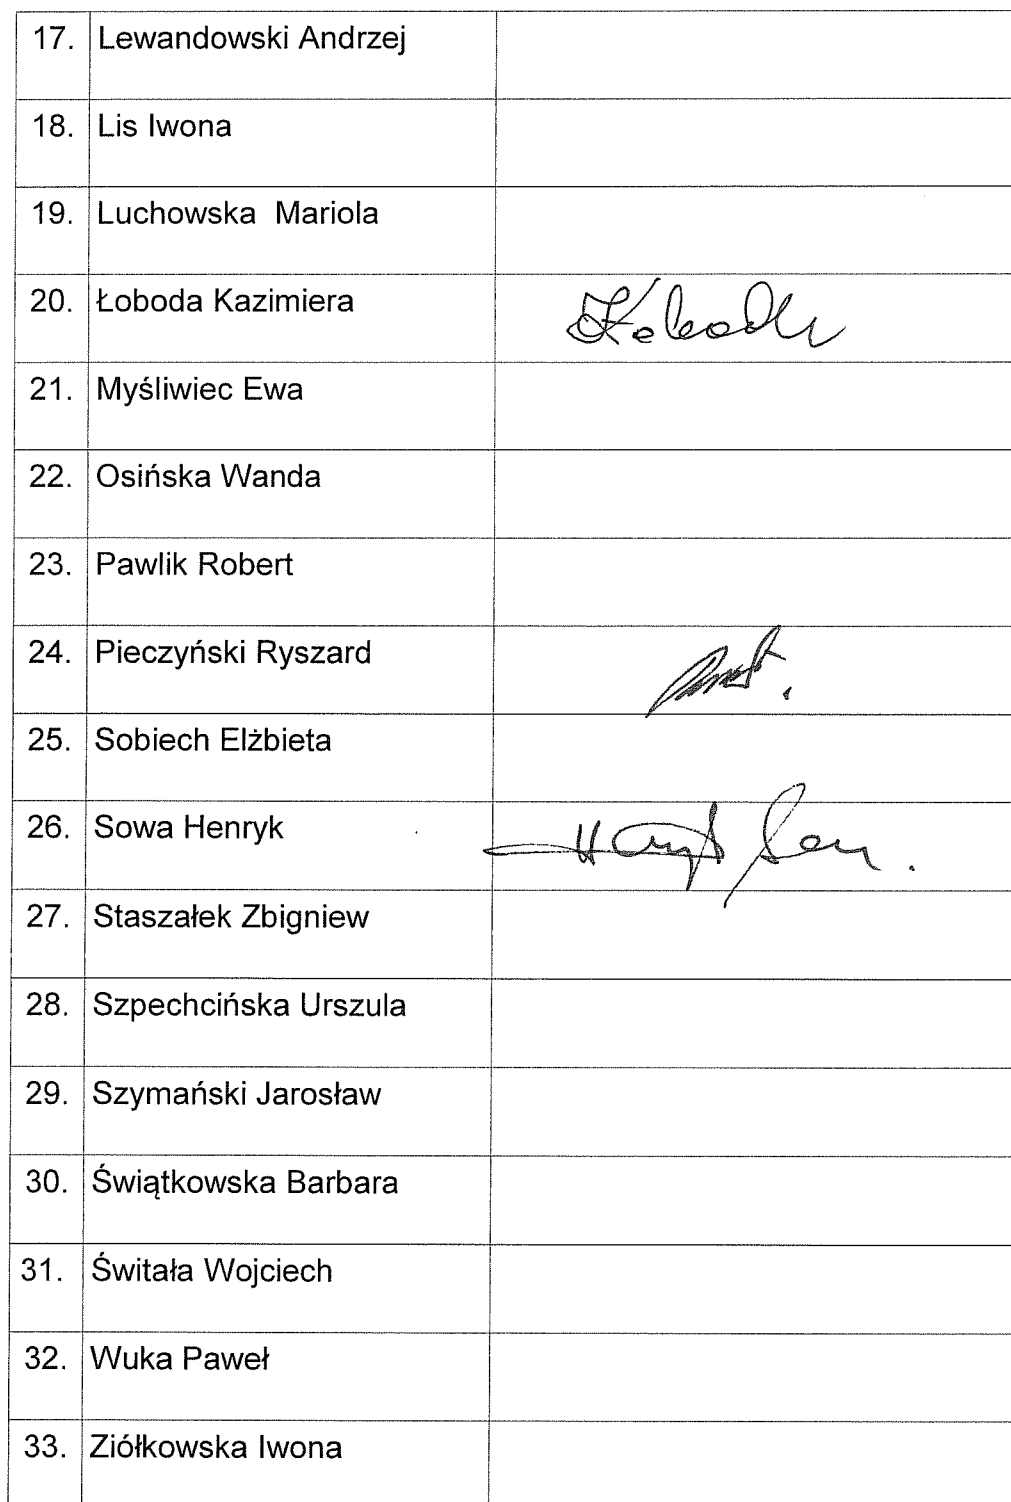 17. Lewandowski Andrzej
18. Lis Iwona
19. Luchowska Mariola
20. Łoboda Kazimiera
21. Myśliwiec Ewa
22. Osińska Wanda
23. Pawlik Robert
24. Pieczyński Ryszard
25. Sobiech Elżbieta
26. Sowa Henryk
27. Staszałek Zbigniew
28. Szpechcińska Urszula
29. Szymański Jarosław
30. Świątkowska Barbara
31. Świtała Wojciech
32. Wuka Paweł
33. Ziółkowska Iwona